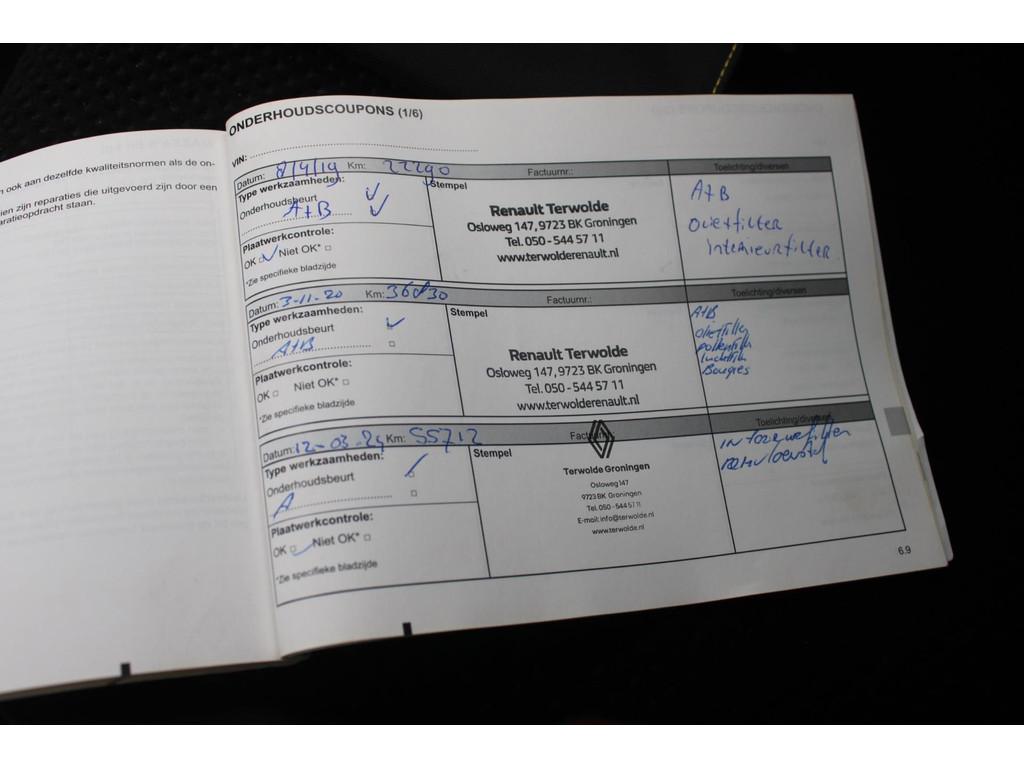 n ook aan dezelfde kwaliteitsnormen als de on-
ien zijn reparaties die uitgevoerd zijn door een
aratieopdracht staan.
ONDERHOUDSCOUPONS (1/6)
VIN:
Datum: 8/4/19 Km: 22290 Factuurnr.: Toelichting/diversen
Type werkzaamheden:
Onderhoudsbeurt
A+B
Plaatwerkcontrole:
OK Niet OK*
*Zie specifieke bladzijde
Stempel
Renault Terwolde
Osloweg 147, 9723 BK Groningen
Tel. 050 - 544 57 11
www.terwolderenault.nl
A+B
Oliefilter
Interieurfilter
Datum: 3-11-20 Km: 36830 Factuurnr.: Toelichting/diversen
Type werkzaamheden:
Onderhoudsbeurt
A+B
Plaatwerkcontrole:
OK Niet OK*
*Zie specifieke bladzijde
Stempel
Renault Terwolde
Osloweg 147, 9723 BK Groningen
Tel. 050 - 544 57 11
www.terwolderenault.nl
A+B
oliefilter
pollenfilter
luchtfilter
Bougies
Datum: 12-03-24 Km: 55712 Toelichting/diversen
Type werkzaamheden:
Onderhoudsbeurt
A
Plaatwerkcontrole:
OK Niet OK*
*Zie specifieke bladzijde
Stempel
Terwolde Groningen
Osloweg 147
9723 BK Groningen
Tel. 050 - 544 57 11
E-mail: info@terwolde.nl
www.terwolde.nl
remvloeistof
6.9